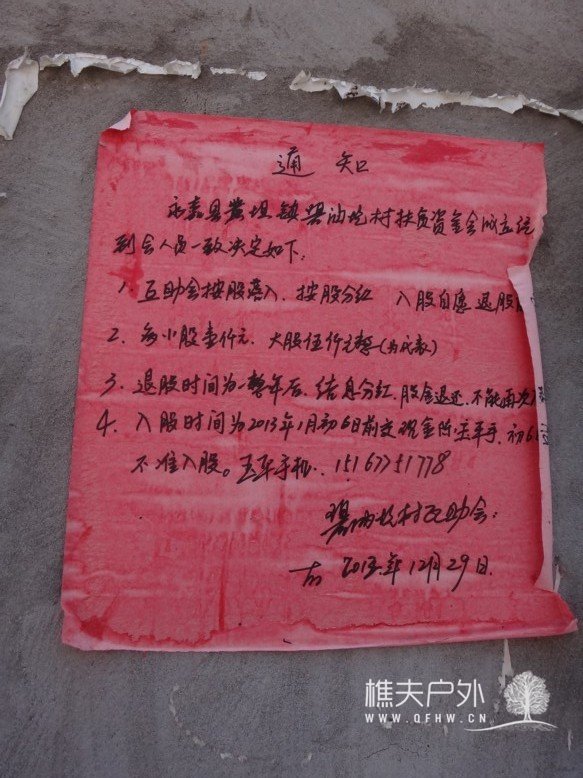 通知
永嘉县黄坦镇碧油坑村扶贫资金会成立经
到会人员一致决定如下:
1. 互助会按股落入、按股分红 入股自愿 退股
2. 每小股壹仟元、大股伍仟元整(为代表)
3. 退股时间为一整年后、结息分红、股金退还、不能再次
4. 入股时间为2013年1月初6日前交现金陈 手、初6
不准入股。 手机:15167751778
碧油坑村互助会:
2013年12月29日.
樵夫户外
WWW.QFHW.CN